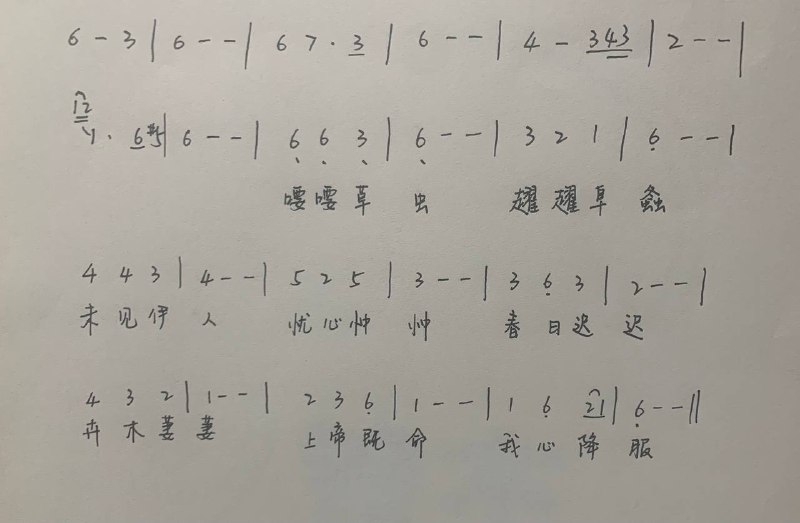 6 - 3 | 6 - - | 6 7 · 3 | 6 - - | 4 - 343 | 2 - - |
12
1 · 6 #5 | 6 - - | 6 6 3 | 6 - - | 3 2 1 | 6 - - |
喓喓草 虫 趯趯阜 螽
4 4 3 | 4 - - | 5 2 5 | 3 - - | 3 6 3 | 2 - - |
未见伊 人 忧心忡 忡 春日迟 迟
4 3 2 | 1 - - | 2 3 6 | 1 - - | 1 6 21 | 6 - - ||
卉木萋 萋 上帝既 命 我心降 服